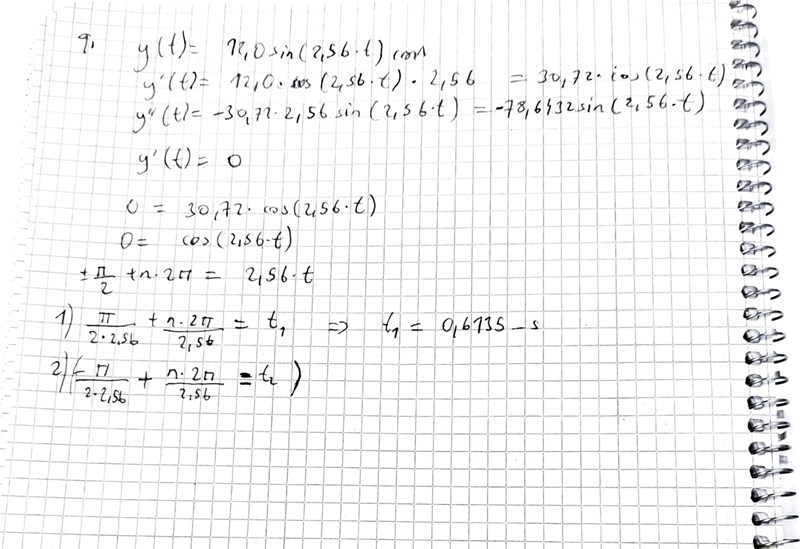 9.
y(t) = 12,0 sin(2,56·t) cm
y'(t) = 12,0 · cos(2,56·t) · 2,56 = 30,72 · cos(2,56·t)
y''(t) = -30,72 · 2,56 sin(2,56·t) = -78,6432 sin(2,56·t)
y'(t) = 0
0 = 30,72 · cos(2,56·t)
0 = cos(2,56·t)
±π/2 + n·2π = 2,56·t
1) π/(2·2,56) + n·2π/2,56 = t₁ ⇒ t₁ = 0,6135 – s
2) (-π/(2·2,56) + n·2π/2,56 = t₂)